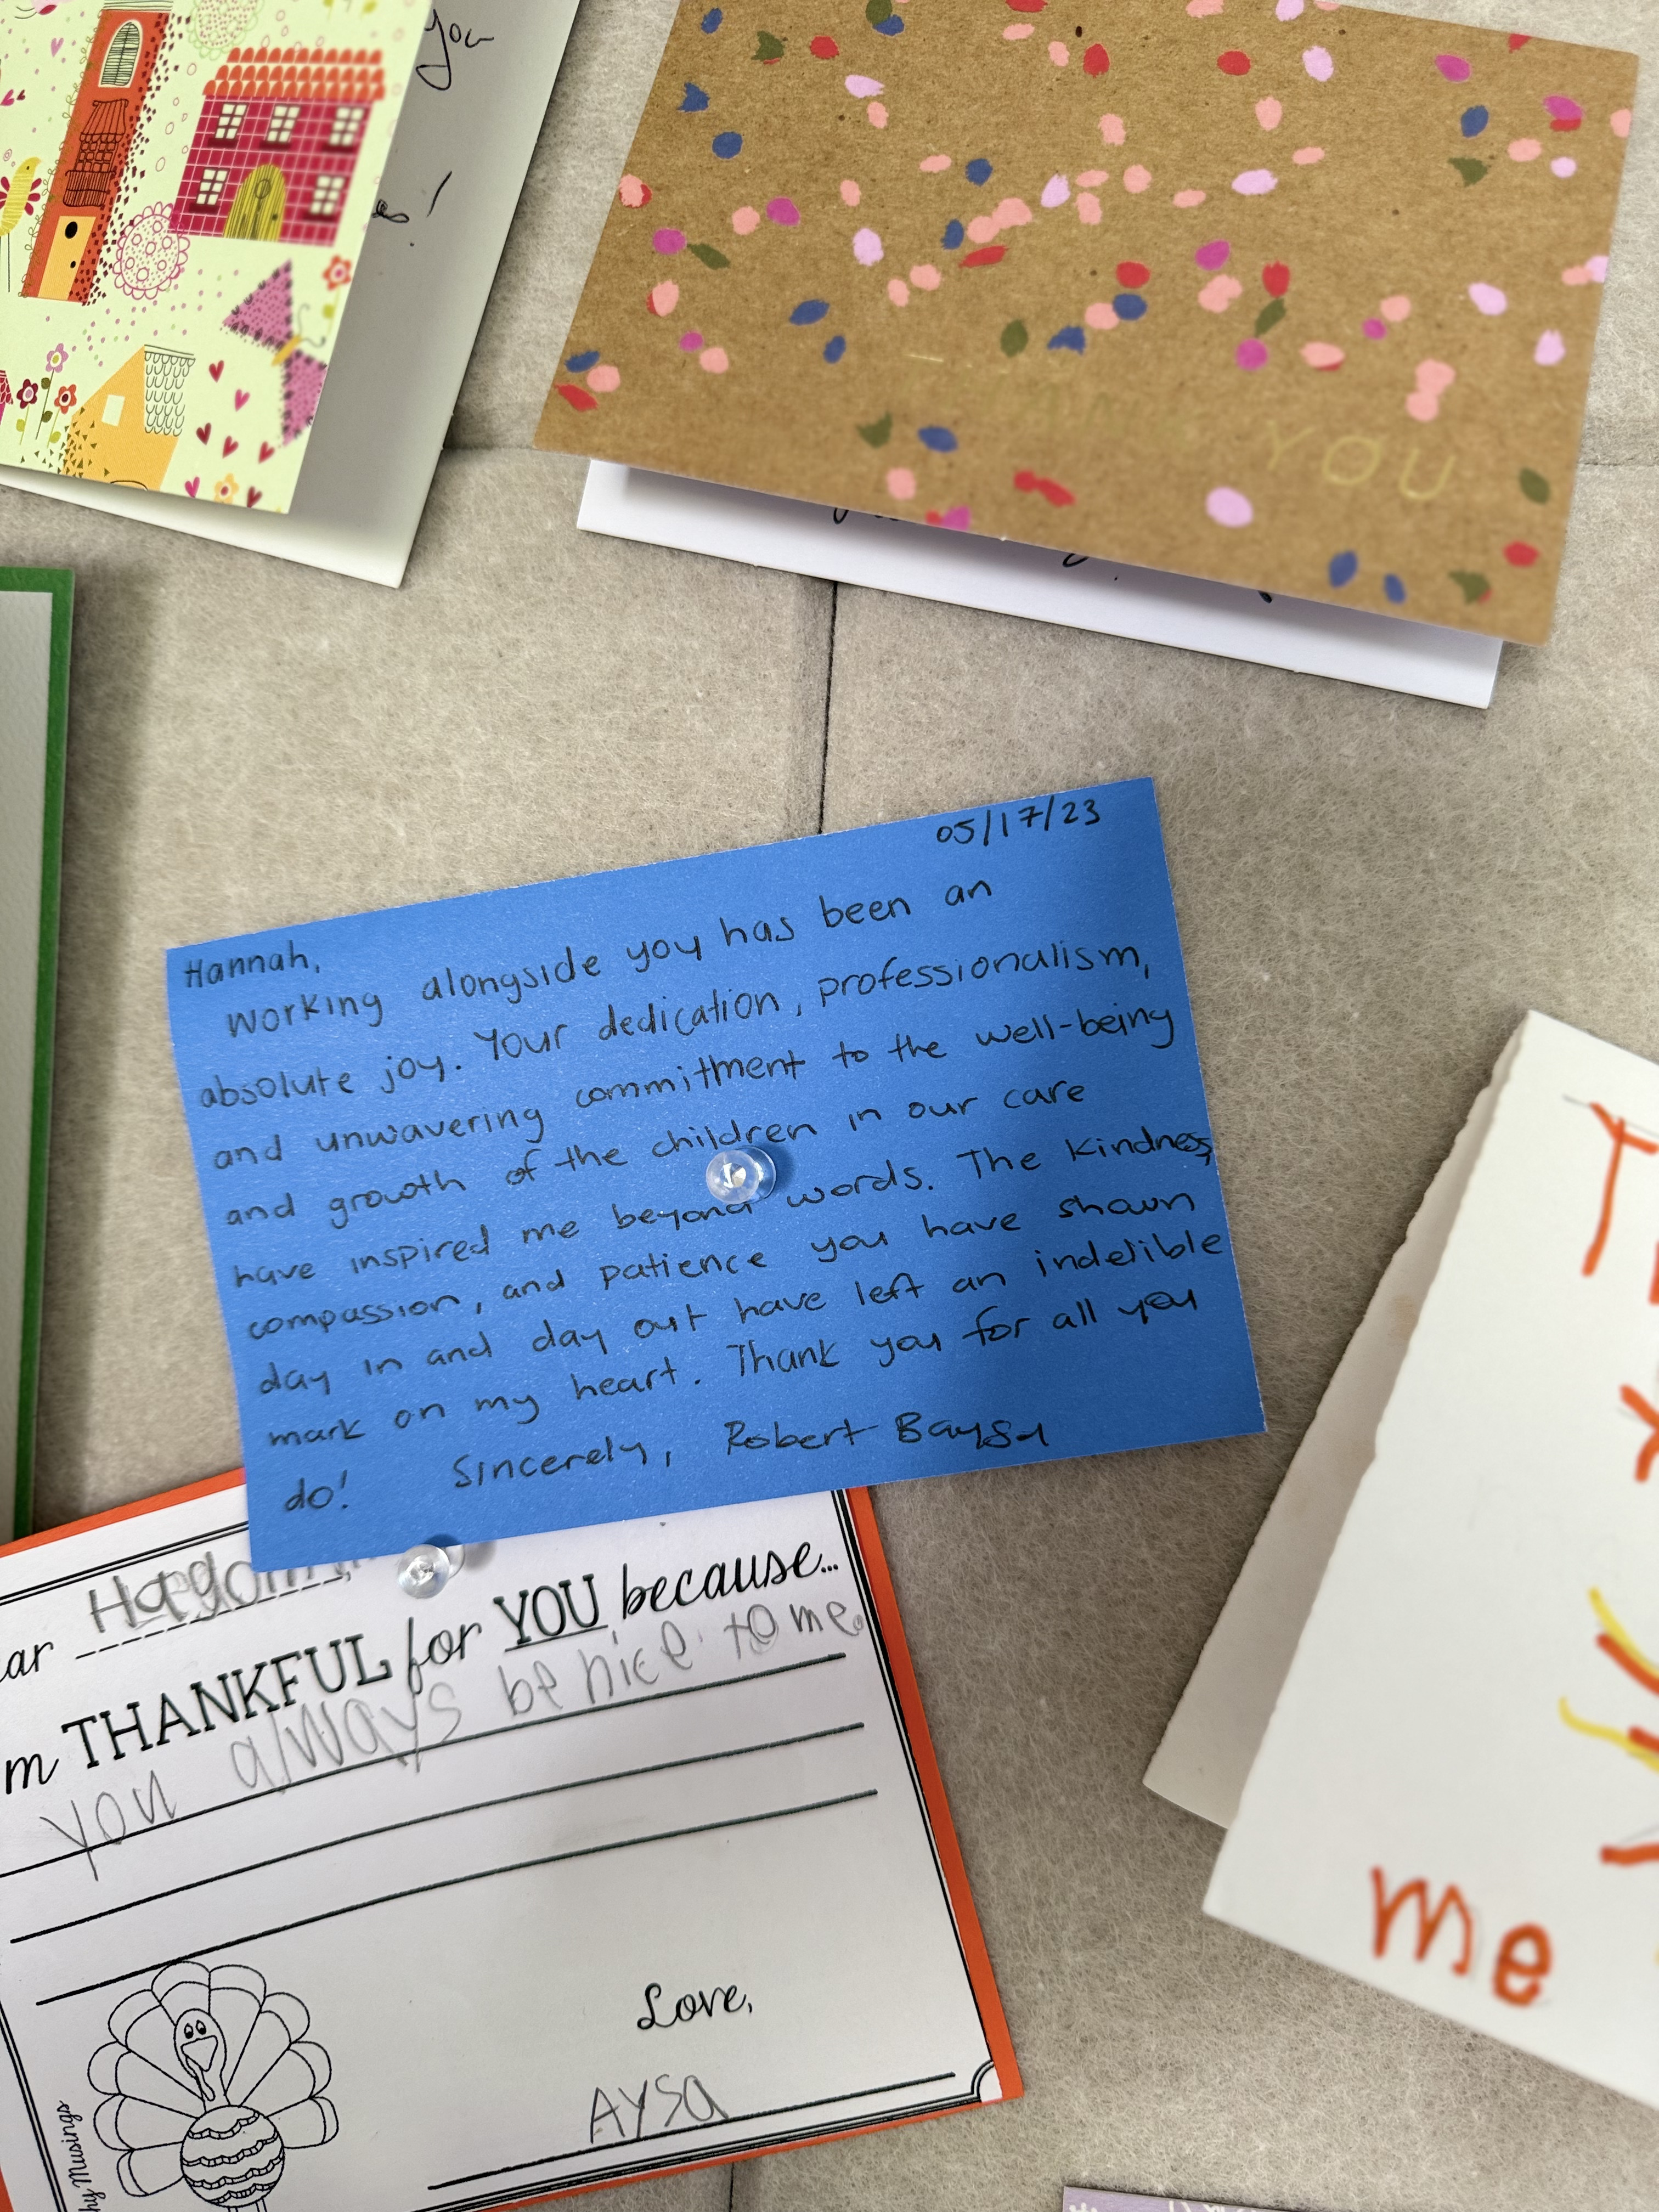 you
THANK YOU
05/17/23
Hannah,
Working alongside you has been an
absolute joy. Your dedication, professionalism,
and unwavering commitment to the well-being
and growth of the children in our care
have inspired me beyond words. The kindness,
compassion, and patience you have shown
day in and day out have left an indelible
mark on my heart. Thank you for all you
do! Sincerely, Robert Baysa
ar
m THANKFUL for YOU because...
you always be nice to me.
Love,
Aysa
hy Musings
me